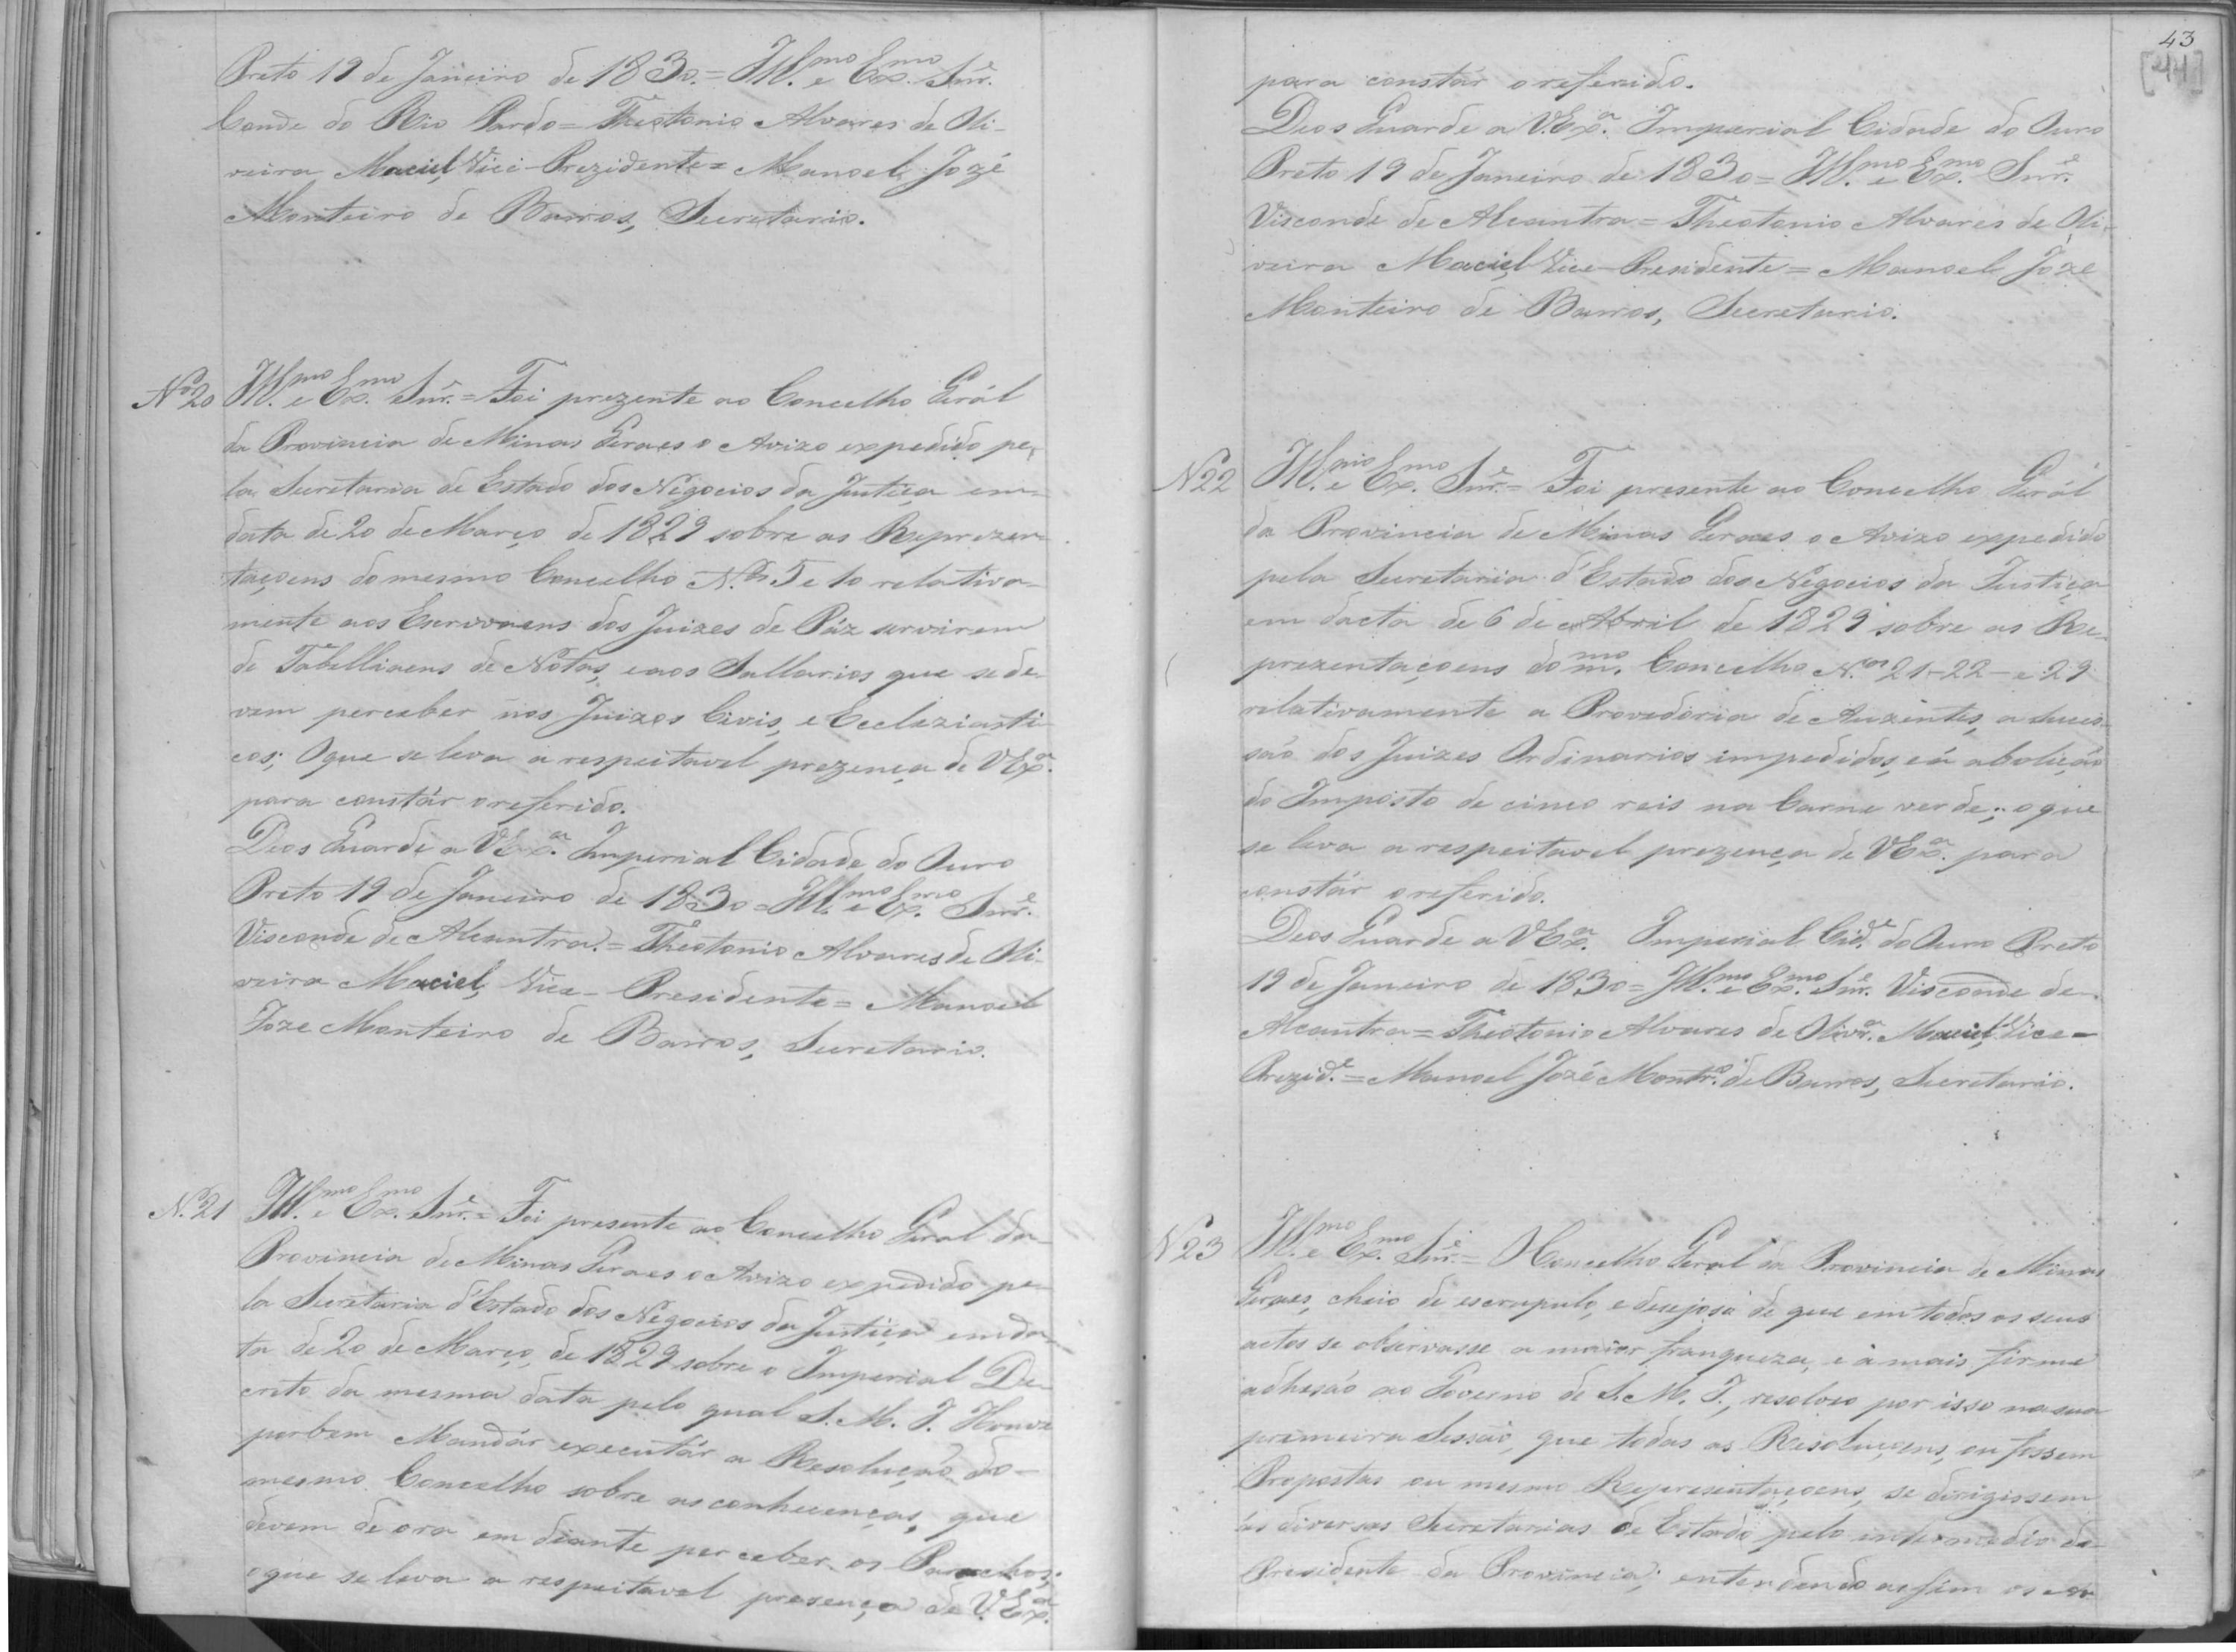 Preto 19 de Janeiro de 1830.= Ill.mo e Ex.mo Snr.
Conde do Rio Pardo= Theotonio Alvares de Oli-
veira Maciel, Vici-Prezidente= Manoel Jozé
Monteiro de Barros, Secretario.
Nº 20 Ill.mo e Ex.mo Snr.= Foi prezente ao Concelho Gerál
da Provincia de Minas Geraes o Avizo expedido pe-
la Secretaria de Estado dos Negocios da Justiça em
data de 20 de Março de 1829 sobre as Reprezen-
taçoens do mesmo Concelho N.os 5 e 10 relativa-
mente aos Escrivaens dos Juizes de Páz servirem
de Tabelliaens de Notas, e aos Sallarios que se de-
vem perceber nos Juizos Civis, e Eccleziasti-
cos; O que se leva a respeitavel prezença de V Ex.a
para constár o referido.
Deos Guarde a V Ex.a Imperial Cidade do Ouro
Preto 19 de Janeiro de 1830= Ill.mo e Ex.mo Snr.e
Visconde de Alcantra.= Theotonio Alvares de Oli-
veira Maciel, Vice-Presidente= Manoel
Joze Monteiro de Barros, Secretario.
N. 21 Ill.mo e Ex.mo Snr.e= Foi presente ao Concelho Geral da
Provincia de Minas Geraes o Avizo expedido pe-
la Secretaria d'Estado dos Negocios da Justiça em da-
ta de 20 de Março, de 1829 sobre o Imperial De-
creto da mesma data pelo qual S. M. I. Houve
por bem Mandár executár a Resolução do
mesmo Concelho sobre as conhecenças, que
devem de ora em diante perceber os Parochos;
o que se leva a respeitavel presença de V. Ex.a
43
[44]
para constár o referido.
Deos Guarde a V. Ex.a Imperial Cidade do Ouro
Preto 19 de Janeiro de 1830= Ill.mo e Ex.mo Snr.e
Visconde de Alcantra= Theotonio Alvares de Oli-
veira Maciel, Vice-Presidente= Manoel Joze
Monteiro de Barros, Secretario.
N 22 Ill.mo e Ex.mo Snr.e= Foi presente ao Concelho Gerál
da Provincia de Minas Geraes o Avizo expedido
pela Secretaria d'Estado dos Negocios da Justiça
em dacta de 6 de Abril de 1829 sobre as Re-
prezentaçoens do m.mo Concelho N.os 21-22- e 29
relativamente a Provedoria de Auzentes, a suces-
são dos Juizes Ordinarios impedidos, e á abolição
do Imposto de cinco reis na Carne verde; o que
se leva a respeitavel prezença de V Ex.a para
constár o referido.
Deos Guarde a V Ex.a Imperial Cid.e do Ouro Preto
19 de Janeiro de 1830= Ill.mo e Ex.mo Snr.e Visconde de
Alcantra= Theotonio Alvares de Olivr.a Maciel, Vice-
Prezid.e= Manoel Jozé Montr.o de Barros, Secretario.
N 23 Ill.mo e Ex.mo Snr.e= O Concelho Geral da Provincia de Minas
Geraes, cheio de escrupulo, e desejoso de que em todos os seus
actos se observasse a maior franqueza, e a mais firme
adhesão ao Governo de S. M. I., resolveo por isso na sua
premeira Sessão, que todas as Resoluçoens, ou fossem
Propostas ou mesmo Representaçoens, se dirigissem
ás diversas Secretarias de Estado pelo intermedio do
Presidente da Provincia; entendendo assim os